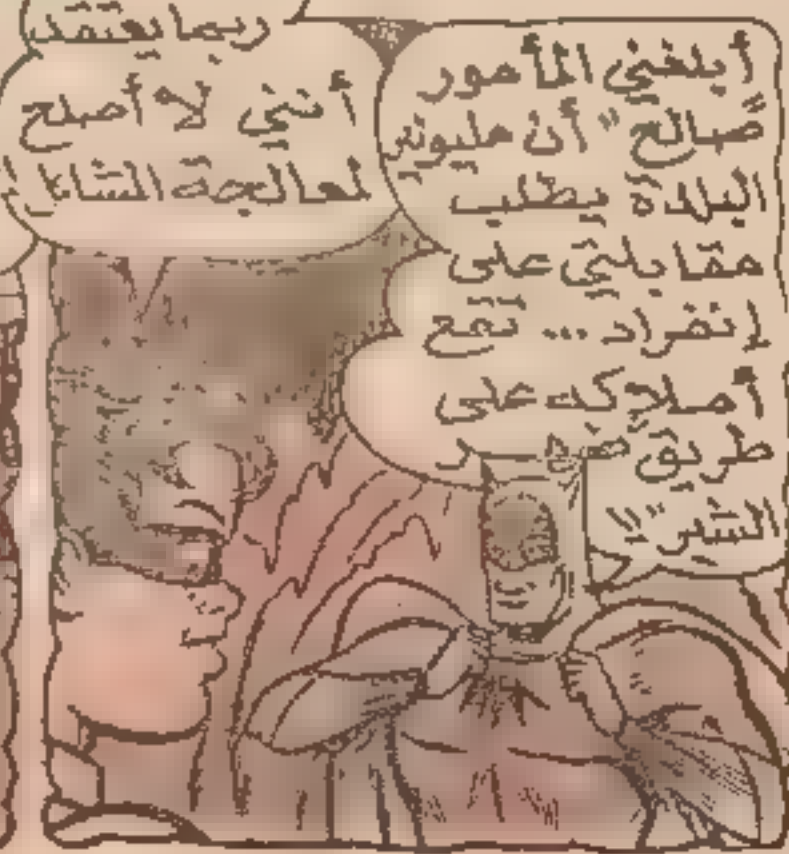 أبلغني المأمور
"صالح" أن مليونير
البلدة يطلب
مقابلتي على
إنفراد... تقع
أملاكك على
طريق
الشر"!!
ربما يعتقد
أنني لا أصلح
لمعالجة